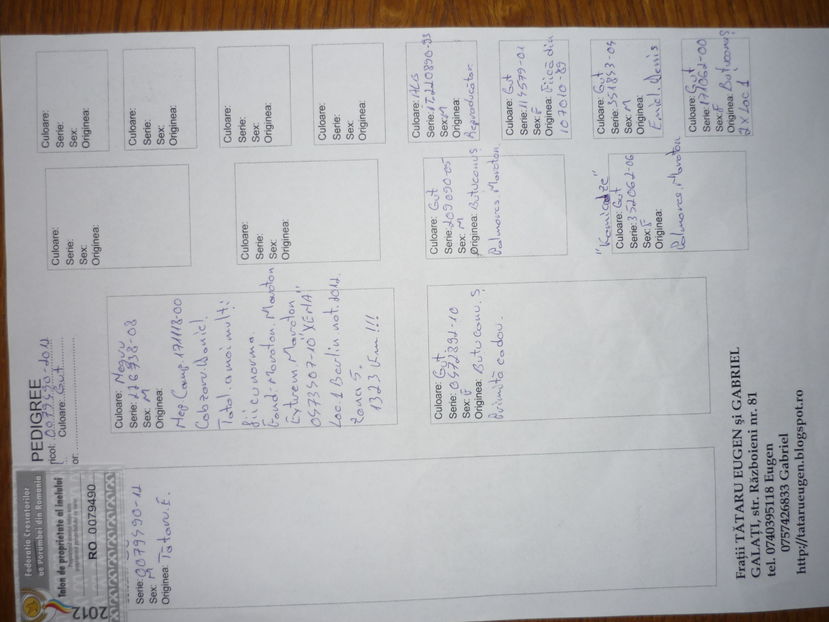 PEDIGREE
0079490-2012
Culoare: Gut
Federatia Crescatorilor
de Porumbei din Romania
Talon de proprietate al inelului
RO 0079490
2012
Serie: 0079490-12
Sex: M
Originea: Tataru.E.
Culoare: Negru
Serie: 126938-08
Sex: M
Originea:
Nep Camp. 171118-00
Cobzaru Daniel.
Tatal a mai mult:
fii cu norma.
Fond. Maraton. Maraton
Extrem Maraton
0573507-10 "XENA"
Loc 1 Berlin nat. 2012.
Zona 5.
1323 Km !!!
Culoare: Gut
Serie: 0472892-10
Sex: F
Originea: Butucanu. S.
Primită cadou.
Culoare:
Serie:
Sex:
Originea:
Culoare:
Serie:
Sex:
Originea:
Culoare: Gut
Serie: 209090-05
Sex: M
Originea: Butucanuș
Palmares. Maraton.
"Kamicadze"
Culoare: Gut
Serie: 352062-06
Sex: F
Originea:
Palmares. Maraton
Culoare:
Serie:
Sex:
Originea:
Culoare:
Serie:
Sex:
Originea:
Culoare:
Serie:
Sex:
Originea:
Culoare:
Serie:
Sex:
Originea:
Culoare: ALG
Serie: IT.220890-93
Sex: M
Originea:
Reproducător
Culoare: Gut
Serie: 114579-01
Sex: F
Originea: Fiică din
107010-89
Culoare: Gut
Serie: 351853-04
Sex: M
Originea:
Emiel. Denis
Culoare: Gut
Serie: 171062-00
Sex: F
Originea: Butucanuș
2 x Loc 1
Frații TĂTARU EUGEN și GABRIEL
GALAȚI, str. Războieni nr. 81
tel. 0740395118 Eugen
0757426833 Gabriel
http://tatarueugen.blogspot.ro